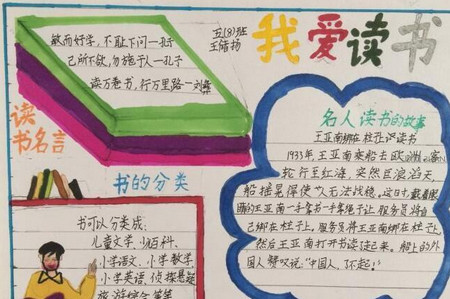 敏而好学，不耻下问一孔子
己所不欲，勿施于人一孔子
读万卷书，行万里路一刘彝
五(8)班
王绪扬
我爱读书
读书名言
书的分类
书可以分类成：
儿童文学、少儿百科、
小学语文、小学数学
小学英语、侦探悬疑
旅游综合等等
名人读书的故事
王亚南绑在柱子边读书
1933年王亚南乘船去欧洲。客
轮行至红海，突然巨浪滔天，
船摇晃得使人无法站稳。这时戴着眼
镜的王亚南一手拿书一手
自己绑在柱子上。服务员将王亚南绑在柱子上，
然后王亚南打开书读起来。船上的外
国人赞叹说："中国人，了不起！"